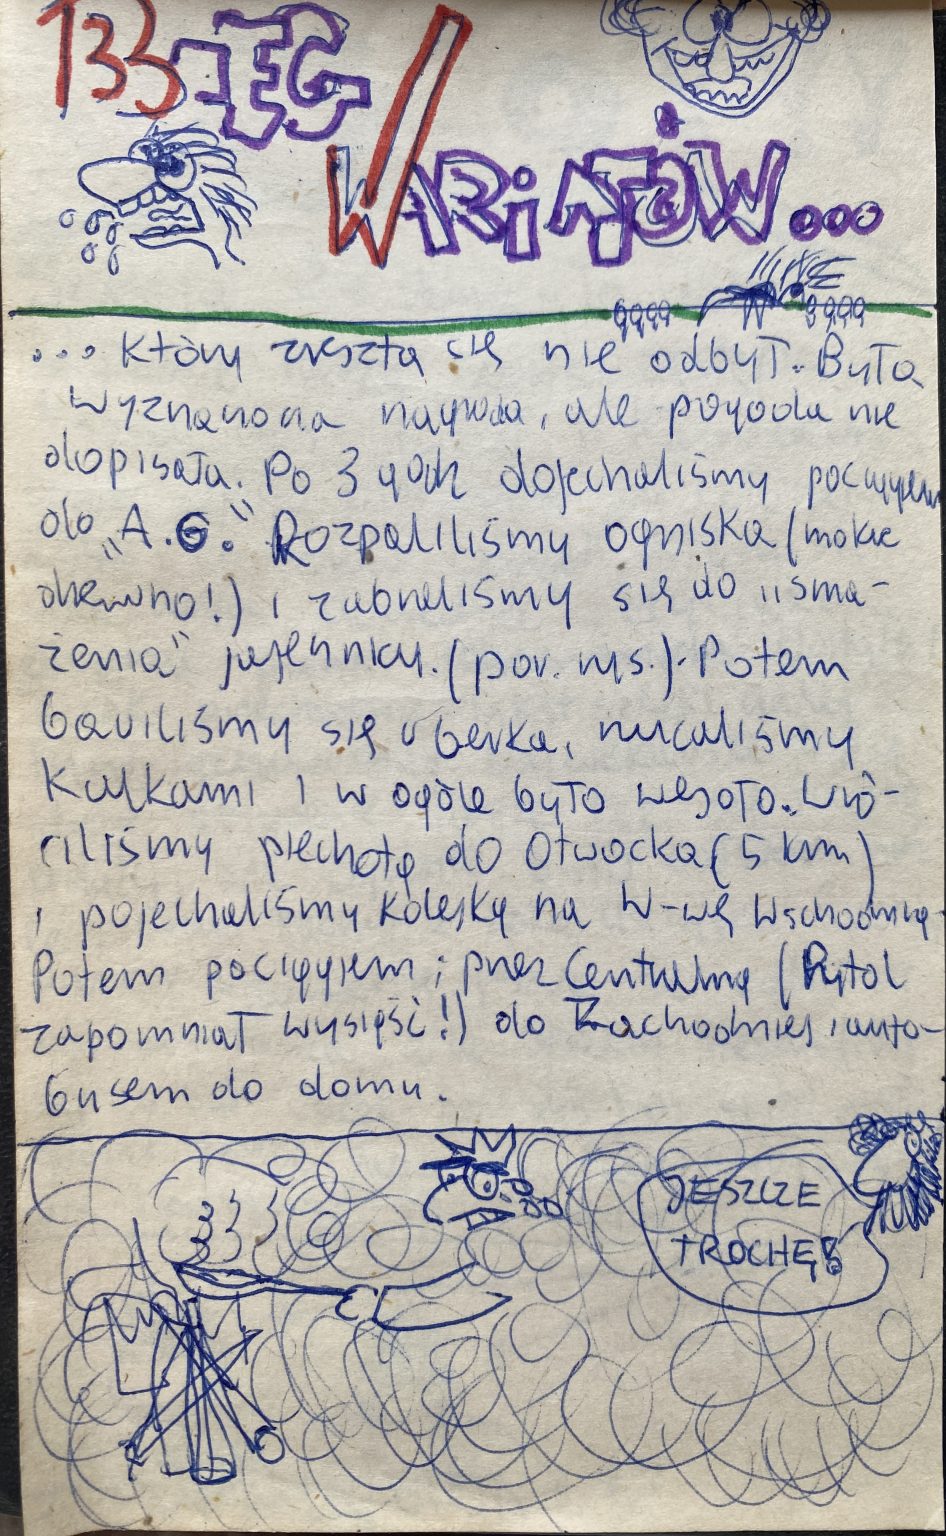 BIEG
WARIATÓW...
... który zresztą się nie odbył. Była
wyznaczona nagroda, ale pogoda nie
dopisała. Po 3 godz dojechaliśmy pociągiem
do „A.G." Rozpaliliśmy ogniska (mokre
drewno!) i zabraliśmy się do „sma-
żenia" jajecznicy. (por. rys.). Potem
bawiliśmy się w berka, rzucaliśmy
kulkami i w ogóle było wesoło. Wró-
ciliśmy piechotą do Otwocka (5 km)
i pojechaliśmy kolejką na W-wę Wschodnią.
Potem pociągiem; przez Centralną (
zapomniał wysiąść!) do Zachodniej i auto-
busem do domu.
JESZCZE
TROCHĘ!